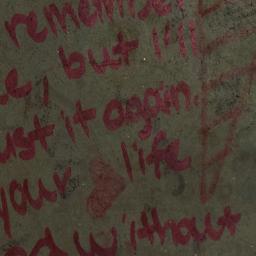 remember
e, but I'll
ust it again.
your life
ed without